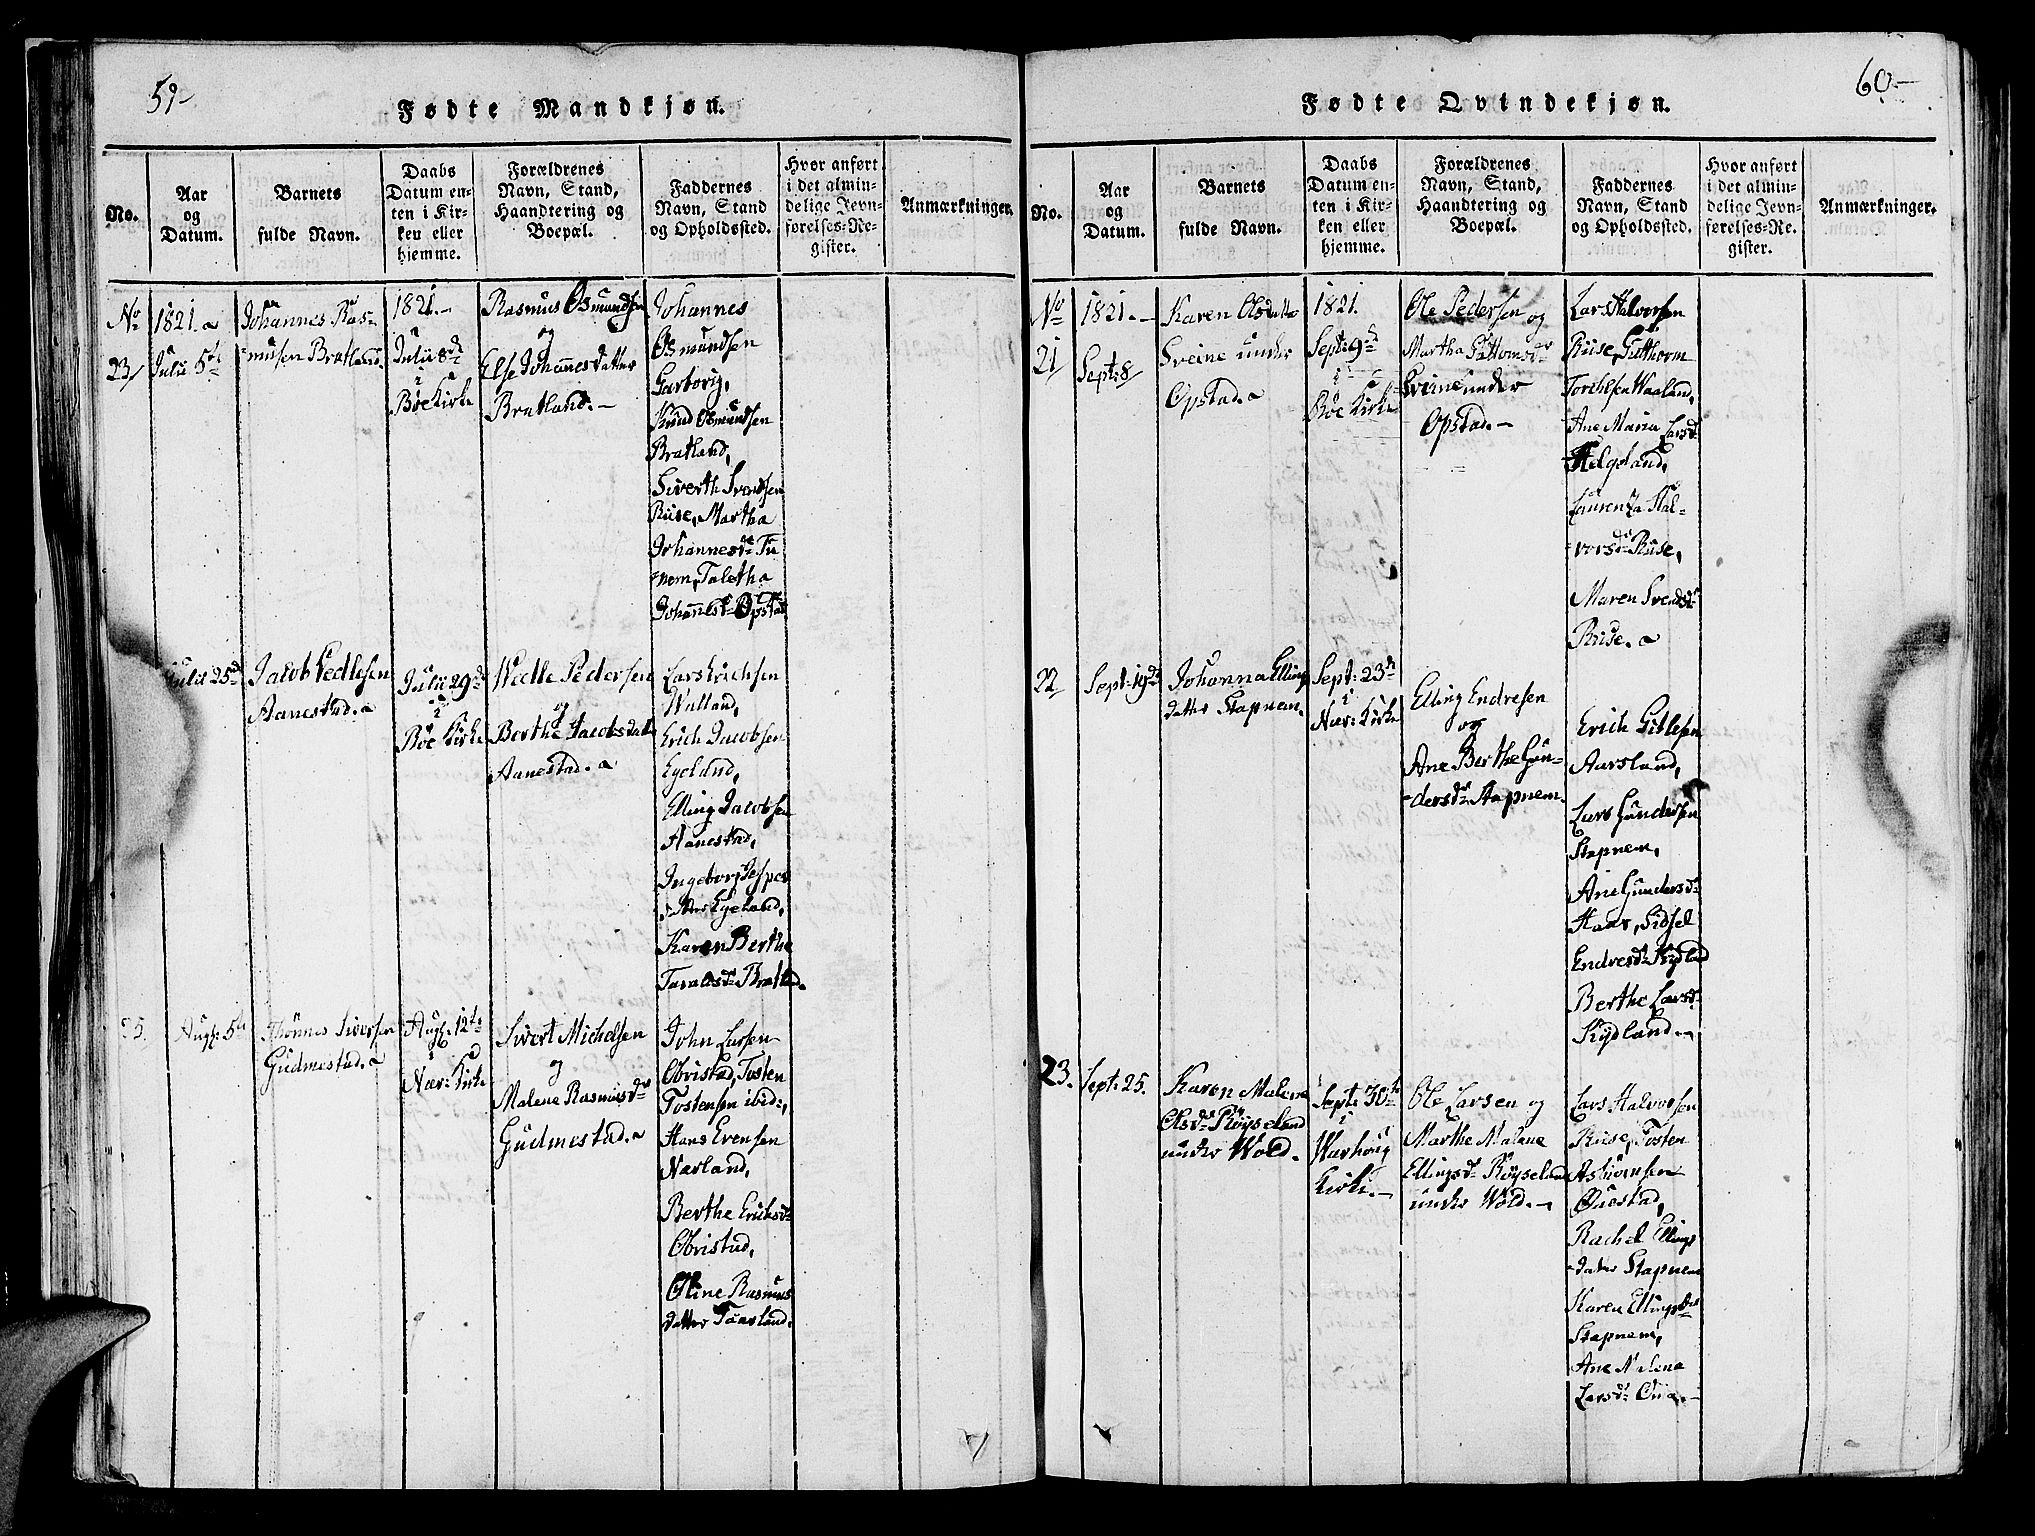 59-
Fødte Mandkjøn.
No.
Aar
og
Datum.
Barnets
fulde Navn.
Daabs
Datum en-
ten i Kir-
ken eller
hjemme.
Forældrenes
Navn, Stand,
Haandtering og
Boepæl.
Faddernes
Navn, Stand
og Opholdssted.
Hvor anført
i det almin-
delige Jevn-
førelses-Re-
gister.
Anmærkninger.
No
23/
1821.
Julii 5te
Johannes Ras-
musen Bratland.
1821.-
Julii 8de
i
Bøe Kirke
Rasmus Osmundsen
og
Else Johannesdatter
Bratland.-
Johannes
Osmundsen
Garborg,
Knud Osmundsen
Bratland,
Siverth Svendsen
Riise, Martha
Johannesdr Tu
nem, Taletha
Johannesdr Opstad
Julii 25de
Jacob Vedlesen
Aanestad.
Julii 29de
i
Bøe Kirke
Wedle Pedersen
og
Berthe Jacobsdatter
Aanestad.
Lars Erichsen
Watland,
Erich Jacobsen
Egeland,
Elling Jacobsen
Aanestad,
Ingeborg Jesper
datter Egeland,
Karen Berthe
Taraldsdr Bratland.
25.
Augs: 5te
Thønnes Siversen
Gudmestad.
Augs: 12te
i
Nær: Kirke
Sivert Michelsen
og
Malene Rasmusdr
Gudmestad.
John Larsen
Obristad, Tosten
Tostensen ibid:,
Hans Evensen
Narland,
Berthe Eriksdr
Obristad,
Oline Rasmus
datter Taarland.
60-
Fødte Qvindekjøn.
No.
Aar
og
Datum.
Barnets
fulde Navn.
Daabs
Datum en-
ten i Kir-
ken eller
hjemme.
Forældrenes
Navn, Stand,
Haandtering og
Boepæl.
Faddernes
Navn, Stand
og Opholdssted.
Hvor anført
i det almin-
delige Jevn-
førelses-Re-
gister.
Anmærkninger.
No
21/
1821.-
Sept: 8/
Karen Olsdatter
Sveine under
Opstad.
1821.
Sept: 9de
i
Bøe Kirke
Ole Pedersen og
Martha Guttomsdr
Sveine under
Opstad.-
Lars Halvorsen
Riise, Gutthorm
Torchelsen Waaland,
Ane Maria Larsdr
Helgeland,
Laurenza Hal-
vorsdr Riise,
Maren Svendsdr
Riise.
22/
Sept: 19de
Johanna Elling
datter Stapnem.
Sept: 23de
i
Nær: Kirke
Elling Endresen
og
Ane Berthe Gun-
dersdr Stapnem.
Erich Gitlesen
Aarsland,
Lars Gundersen
Stapnem,
Ane Gundersdr
Haar, Sidsel
Endresdr Kydland
Berthe Larsdr
Kydland.-
23.
Sept: 25.
Karen Malene
Olsdr Røyseland
under Wold.
Sept: 30te
i
Warhoug
Kirke.-
Ole Larsen og
Marthe Malene
Ellingsdr Røyseland
under Wold.-
Lars Halvorsen
Riise, Tosten
Asbiørnsen
Questad,
Rachel Ellings
datter Stapnem
Karen Ellingsdr
Stapnem,
Ane Malena
Larsdr Quia.-